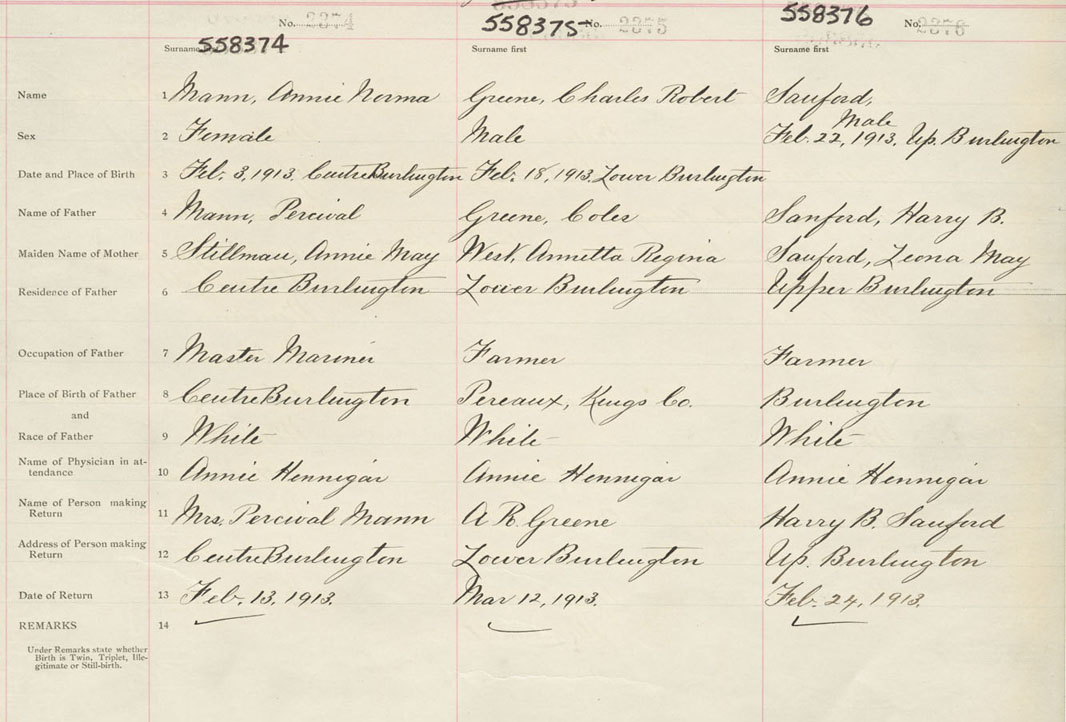 558374 No. 2274 558375 No. 2275 558376 No. 2276
Surname Surname first Surname first
Name 1 Mann, Annie Norma Greene, Charles Robert Sanford,
Male
Sex 2 Female Male Feb. 22, 1913, Up. Burlington
Date and Place of Birth 3 Feb. 3, 1913. Centre Burlington Feb. 18, 1913. Lower Burlington
Name of Father 4 Mann, Percival Greene, Coles Sanford, Harry B.
Maiden Name of Mother 5 Stillman, Annie May West, Annetta Regina Sanford, Leona May
Residence of Father 6 Centre Burlington Lower Burlington Upper Burlington
Occupation of Father 7 Master Mariner Farmer Farmer
Place of Birth of Father 8 Centre Burlington Pereaux, Kings Co. Burlington
and
Race of Father 9 White White White
Name of Physician in at-
tendance 10 Annie Hennigar Annie Hennigar Annie Hennigar
Name of Person making
Return 11 Mrs. Percival Mann A R. Greene Harry B. Sanford
Address of Person making
Return 12 Centre Burlington Lower Burlington Up. Burlington
Date of Return 13 Feb. 13, 1913. Mar 12, 1913. Feb. 24, 1913.
REMARKS 14
Under Remarks state whether
Birth is Twin, Triplet, Ille-
gitimate or Still-birth.